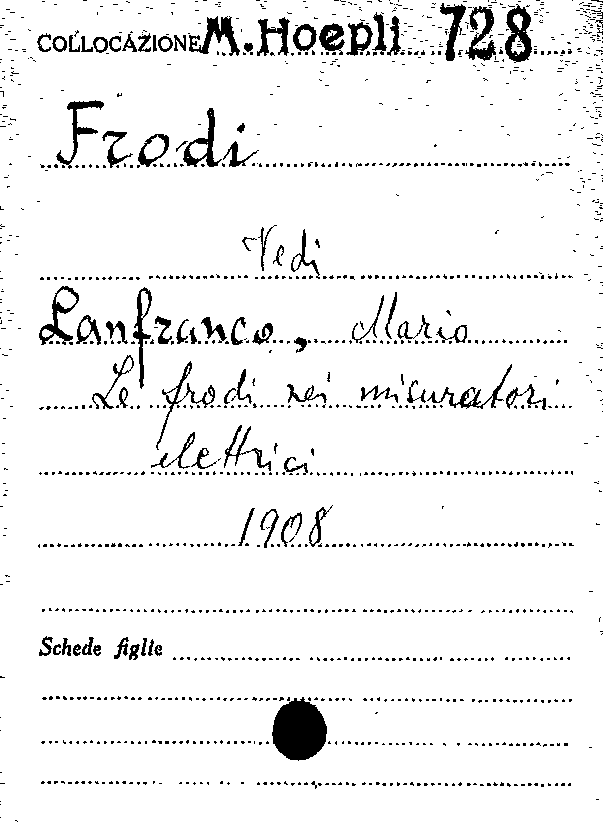 COLLOCAZIONE M. Hoepli 728
Frodi
Vedi
Lanfranco, Mario
Le frodi nei misuratori
elettrici
1908
Schede figlie